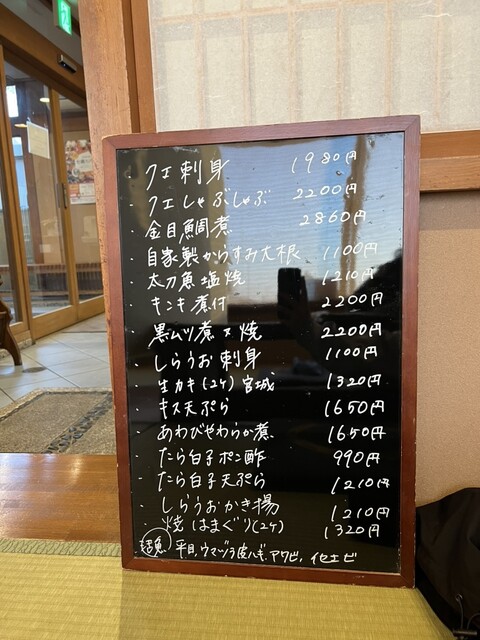 ・クエ刺身 1980円
・クエしゃぶしゃぶ 2200円
・金目鯛煮 2860円
・自家製からすみ大根 1100円
・太刀魚塩焼 1210円
・キンキ煮付 2200円
・黒ムツ煮又焼 2200円
・しらうお刺身 1100円
・生カキ(2ケ)宮城 1320円
・キス天ぷら 1650円
・あわびやわらか煮 1650円
・たら白子ポン酢 990円
・たら白子天ぷら 1210円
・しらうおかき揚 1210円
・焼はまぐり(2ケ) 1320円
平目、ウマヅラ皮ハギ、アワビ、伊セエビ